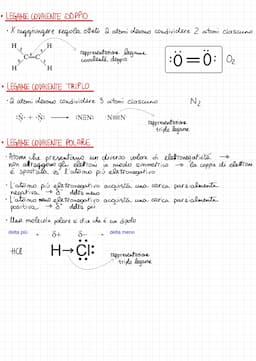 • LEGAME COVALENTE DOPPIO
• X raggiungere regola ottetto 2 atomi devono condividere 2 atomi ciascuno
H H
C = C
H H
rappresentazione legame covalente doppio
:O=O:
O₂
• LEGAME COVALENTE TRIPLO
• 2 atomi devono condividere 3 atomi ciascuno
N₂
:N + :N
:N≡N:
N≡N
rappresentazione
triplo legame
• LEGAME COVALENTE POLARE
• Atomi che presentano un diverso valore di elettronegatività →
non attraggono gli elettroni in modo simmetrico → la coppia di elettroni
è spostata vs l'atomo più elettronegativo
• L'atomo più elettronegativo acquista una carica parzialmente
negativa → δ⁻ delta meno
• L'atomo meno elettronegativo acquista una carica parzialmente
positiva → δ⁺ delta più
• Una molecola polare si dice che è un dipolo
delta più → δ+ δ− → delta meno
HCl
H→Cl:
rappresentazione
triplo legame